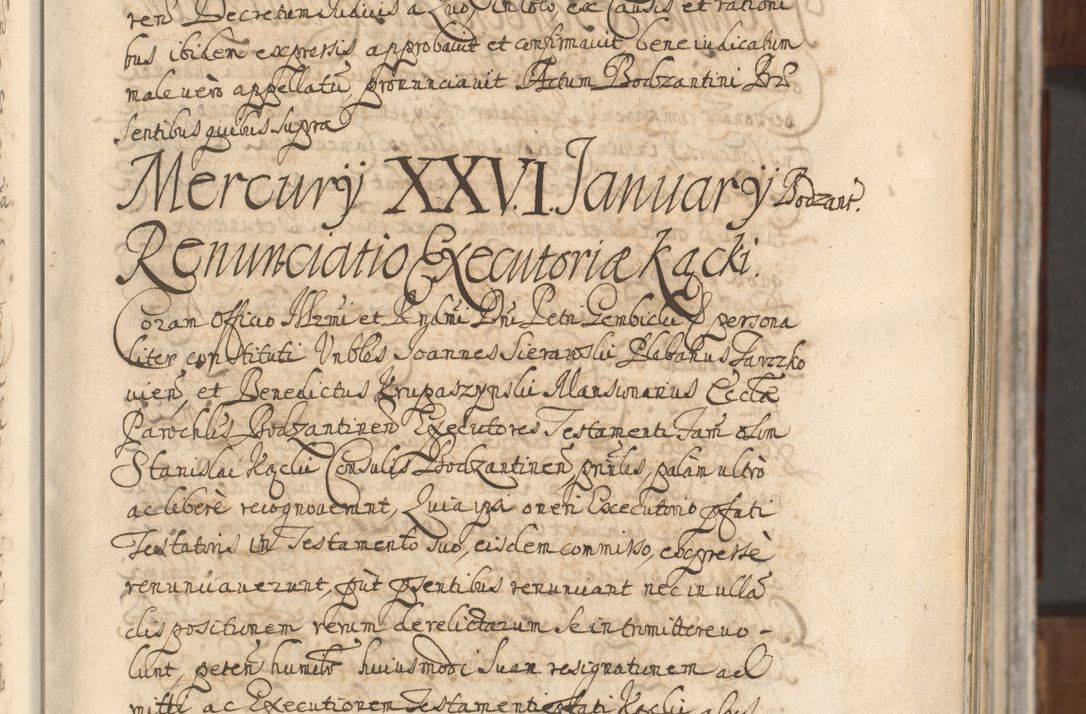 ren̄ Decretum Judicis a Quo, in loco, ex Causis et rationi
bus ibidem expressis approbavit et confirmavit bene iudicatum
male vero appellatū, pronunciavit Actum Bodzantini Præ
sentibus quibus supra
Mercurÿ XXV.I. Januarÿ Bodzant.
Renunciatio Executoriæ Kącki.
Coram Officio Illrmi et Rndmi Dni Petri Gembicki &c persona
liter constituti Vnbles Joannes Sierawski Plabanus Tarczko
vien̄, et Benedictus Krupaszynski Mansionarius Ecclæ
Parochlis Bodzantinen̄ Executores Testamenti Fam olim
Stanislai Kącki Consulis Bodzantinen̄, pnt̄es, palam ultrò
ac liberè recognoverunt, Quia ipsi oneri Executorio pfati
Testatoris in Testamento suo, eisdem commisso, expressè
renunciaverunt, put̀ psentibus renunciant nec in ullā
dispositionem rerum derelictarum se intromittere vo-
lunt, peten̄ humilr̄ huiusmodi suam resignationem ad
mitti ac Executionem Testamenti pfati Kącki alijs